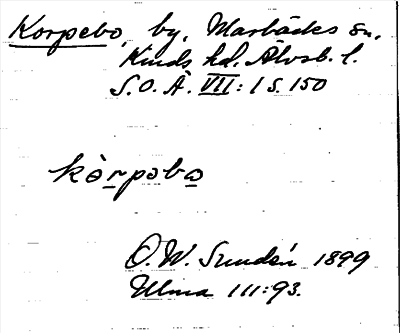 Korpebo, by, Marbäcks sn.
Kinds hd. Älvsb. l.
S.O.Ä. VII: 1 s. 150
kòrpobo
O.W. Sundén 1899
Ulma 111:93.